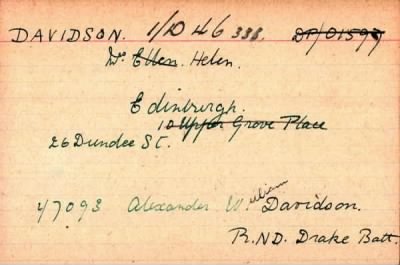 DAVIDSON. 1/D046338. DP/01599
Mrs Ellen. Helen.
Edinburgh.
10 Upper Grove Place
26 Dundee St.
47093 Alexander William Davidson.
R.N.D. Drake Batt.